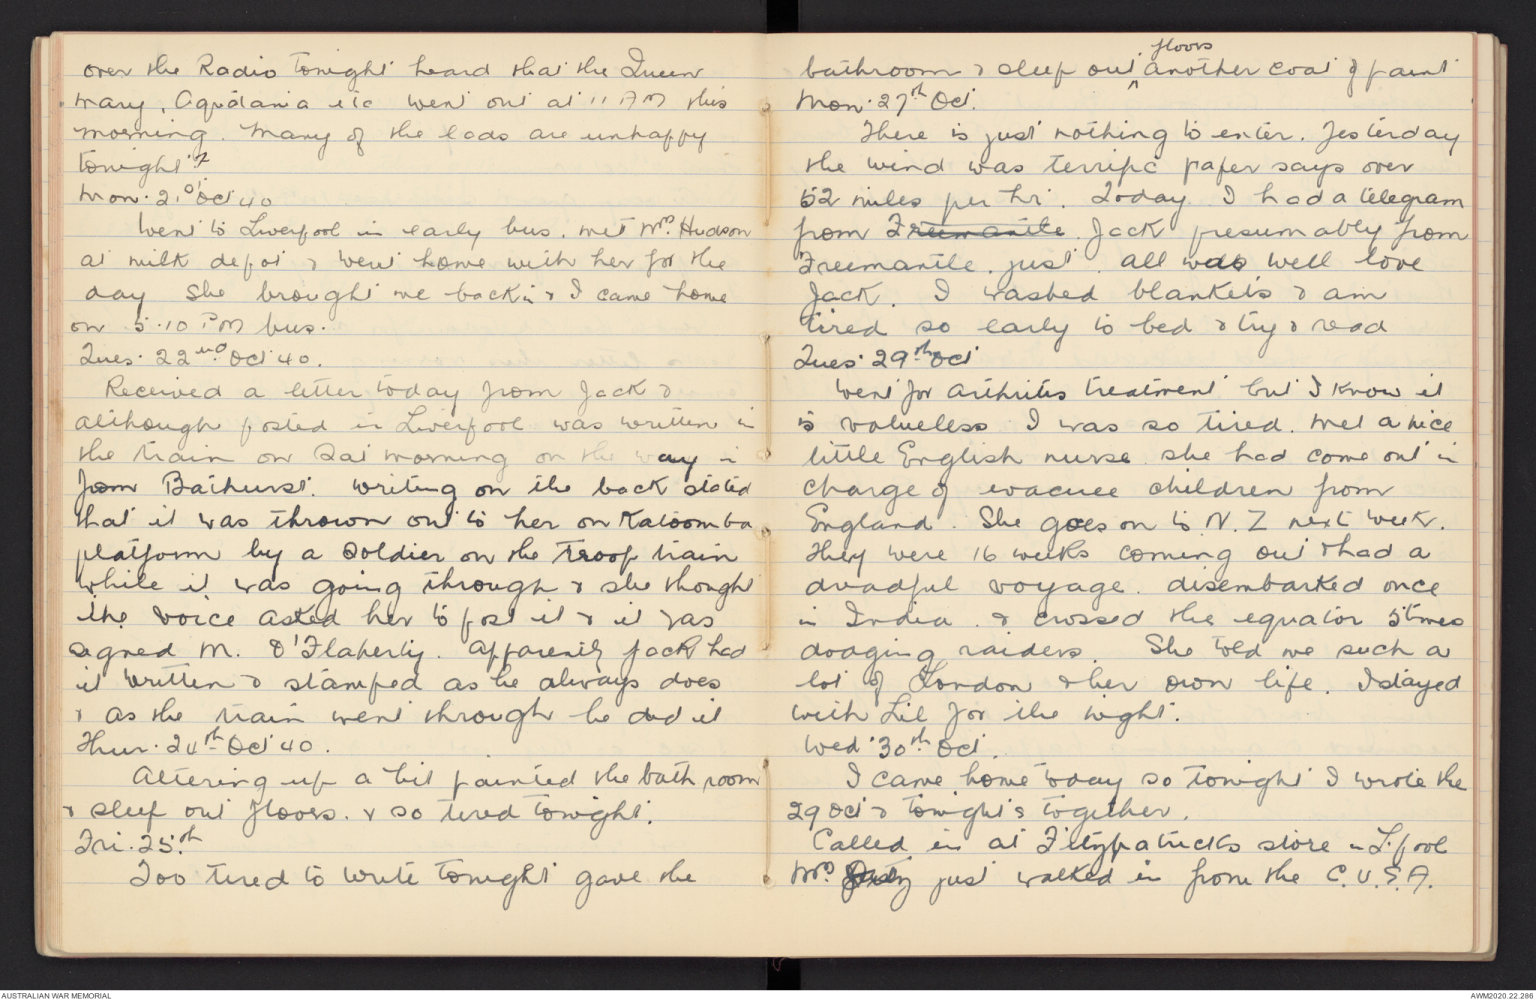 over the Radio tonight heard that the Queen
Mary, Aquitania etc went out at 11 AM this
morning. Many of the lads are unhappy
tonight?
Mon. 21st Oct 40
Went to Liverpool in early bus. met Mrs. Hudson
at milk depot & went home with her for the
day She brought me back in & I came home
on 5.10 PM bus.
Tues. 22nd Oct 40.
Received a letter today from Jack &
although posted in Liverpool was written in
the train on Sat morning on the way in
from Bathurst. Writing on the back stated
that it was thrown out to her on Katoomba
platform by a soldier on the troop train
while it was going through & she thought
the voice asked her to post it & it was
signed M. O'Flaherty. Apparently Jack had
it written & stamped as he always does
& as the train went through he did it
Thur. 24th Oct 40.
Altering up a bit painted the bath room
& sleep out floors. & so tired tonight.
Fri. 25th
Too tired to write tonight gave the
floors
bathroom & sleep out ^ another coat of paint
Mon. 27th Oct.
There is just nothing to enter. Yesterday
the wind was terrific paper says over
52 miles per hr. Today I had a telegram
from Freemantle. Jack presumably from
Freemantle. just. all was well love
Jack. I washed blankets & am
tired so early to bed & try & read
Tues 29th Oct
Went for arthritis treatment but I know it
is valueless I was so tired. Met a nice
little English nurse she had come out in
charge of evacuee children from
England. She goes on to N.Z next week.
They were 16 weeks coming out & had a
dreadful voyage. disembarked once
in India. & crossed the equator 5 times
dodging raiders. She told me such a
lot of London & her own life. I stayed
with Lil for the night.
Wed 30th Oct.
I came home today so tonight I wrote the
29 Oct & tonight's together.
Called in at Fitzpatricks store in L.pool
Mrs. just walked in from the C.U.S.A.
AUSTRALIAN WAR MEMORIAL
AWM2020.22.286